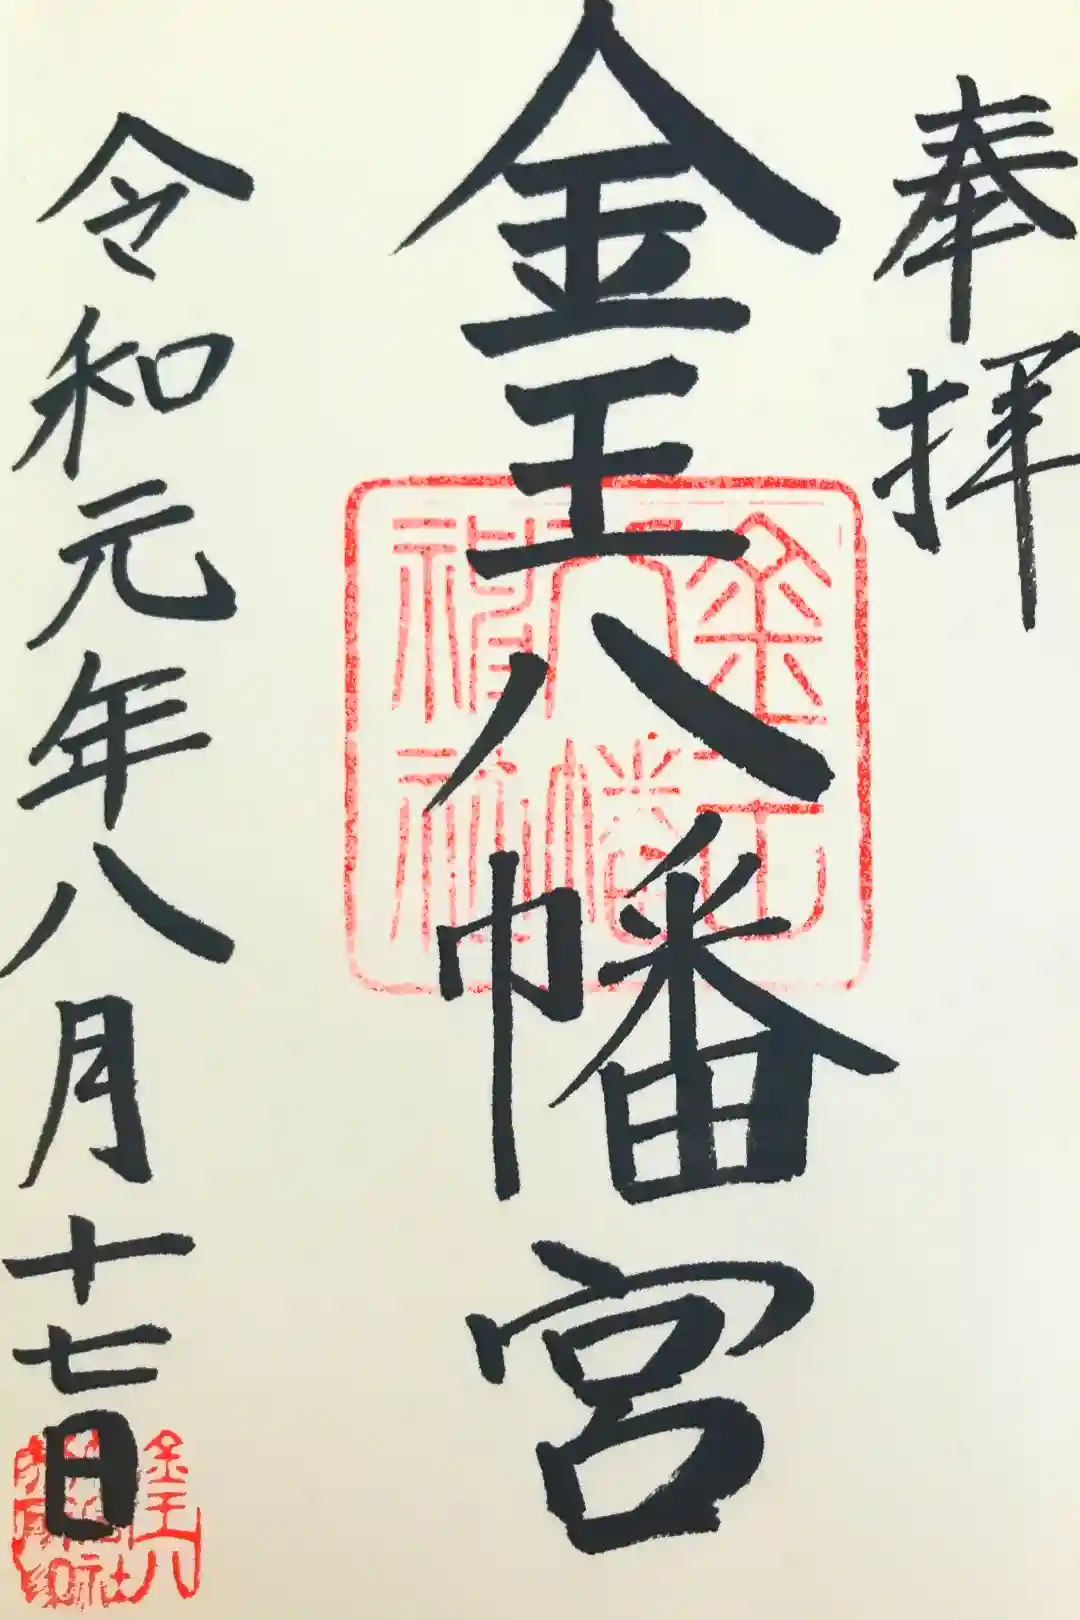 奉拝
金王八幡宮
令和元年八月十七日
金王
八幡
神社